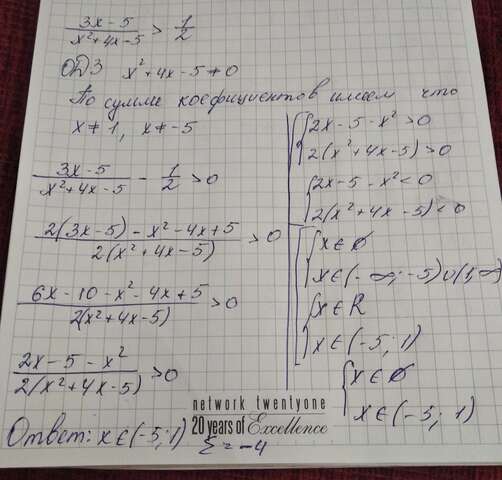 (3x-5)/(x²+4x-5) > 1/2
ОДЗ x²+4x-5≠0
По сумме коефициентов имеем что
x≠1, x≠-5
(3x-5)/(x²+4x-5) - 1/2 >0
(2(3x-5)-x²-4x+5)/(2(x²+4x-5)) >0
(6x-10-x²-4x+5)/(2(x²+4x-5)) >0
(2x-5-x²)/(2(x²+4x-5)) >0
2x-5-x²>0
2(x²+4x-5)>0
2x-5-x²<0
2(x²+4x-5)<0
x∈∅
x∈(-∞;-5)∪(1;∞)
x∈R
x∈(-5;1)
x∈∅
x∈(-5;1)
Ответ: x∈(-5;1) Σ=-4
network twentyone
20 years of Excellence